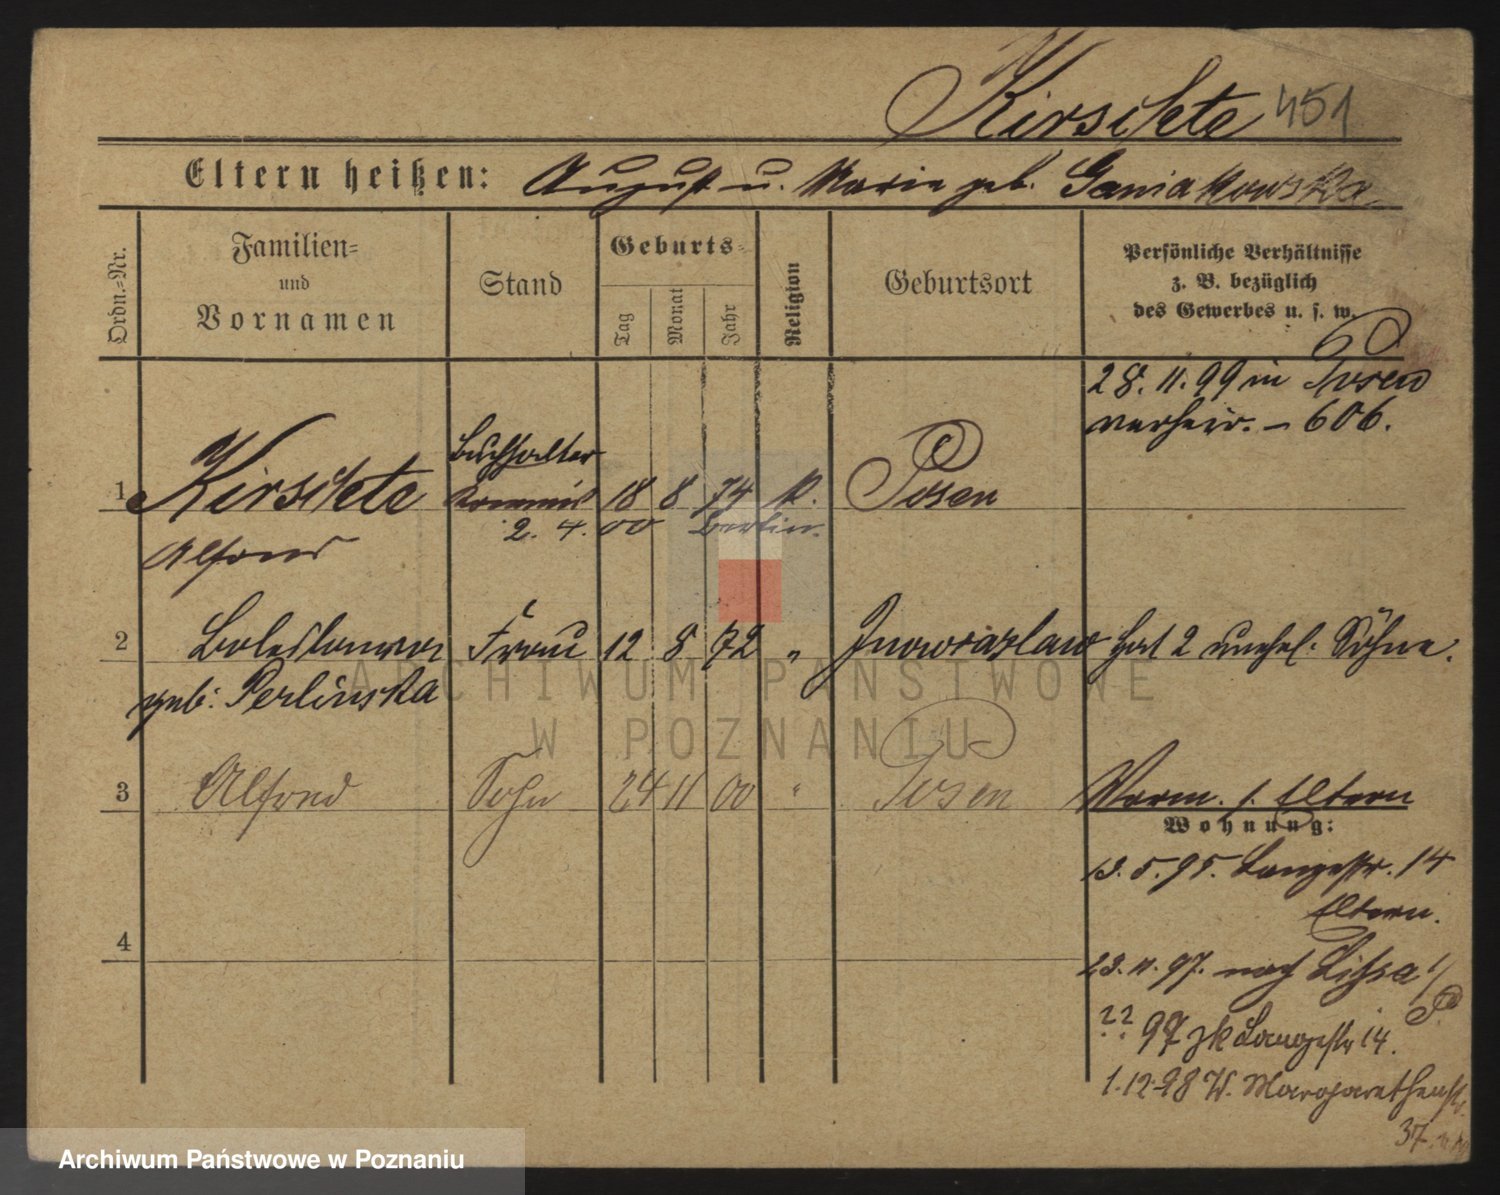 Kirschte 451
Eltern heißen: August u. Marie geb. Ganiakowska
Ordn.-Nr.
Familien- und Vornamen
Stand
Geburts-
Tag Monat Jahr
Religion
Geburtsort
Persönliche Verhältnisse
z. B. bezüglich
des Gewerbes u. s. w.
28. 11. 99 in Posen
verheir. – 606.
Buchhalter
1 Kirschte Kommis 18 8 74 k. Posen
2. 4. 00 Berlin.
Alfons
2 Boleslawa Frau 12 8 72 " Inowrazlaw hat 2 unehl. Söhne.
geb. Perlinska
3 Alfred Sohn 24 11 00 " Posen
Vorm. s. Eltern
Wohnung:
13. 5. 95. Langestr. 14
Eltern.
4
23. 11. 97. nach Lissa
?? 97 zk Langestr 14.
1.12.98 W. Margarethenstr.
37.
ARCHIWUM PAŃSTWOWE
W POZNANIU
Archiwum Państwowe w Poznaniu